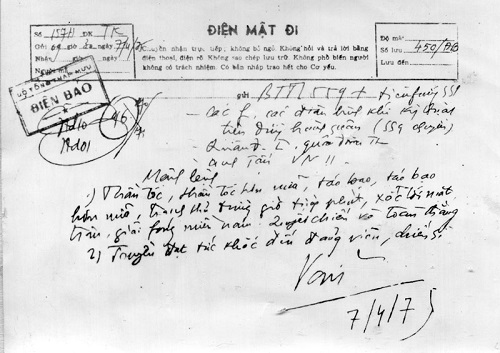 Số 157H ĐK TK
ĐIỆN MẬT ĐI
7/4/75
Chuyển nhận trực tiếp; không bỏ ngỏ. Không hỏi và trả lời bằng
điện thoại, điện rõ. Không vào chép lưu trữ. Không phổ biến người
không có trách nhiệm. Có bản nháp trao hết cho Cơ yếu.
Độ mật
Số lưu 450/ĐB
Lưu đến
BỘ TỔNG THAM MƯU
ĐIỆN BÁO
gửi BTTL 559 + tiền phương 559
- Các f, các đơn vị binh khí kỹ thuật
trên đường hành quân (559 chuyển)
- Quân đoàn II
Mệnh lệnh
1) Thần tốc, thần tốc hơn nữa, táo bạo, táo bạo
hơn nữa, tranh thủ từng giờ từng phút, xốc tới mặt
trận, giải phóng miền nam. Quyết chiến và toàn thắng
2) Truyền đạt tức khắc đến đảng viên, chiến sĩ
Văn
7/4/75